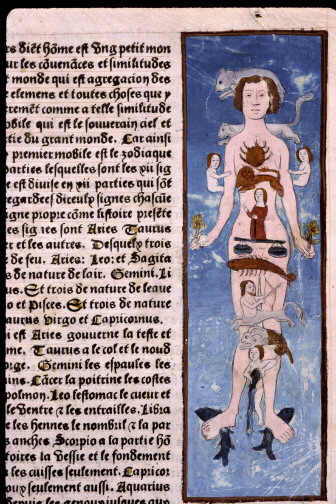 diēt hōme est Vng petit mon
ur les cōuenāces et similitudes
monde qui est agregacion des
elemens et toutes choses que y
cremēt comme a telle similitude
obile qui est le souuerain ciel et
tie du grant monde. Car ainsi
premier mobile est le zodiaque
parties lesquelles sont les xii sig
est diuise en xii parties qui sōt
egardees diceulx signes chascūe
igne propre cōme listoire presēte
es signes sont Aries Taurus
er et les autres. Desquelz trois
de feu. Aries: Leo: et Sagita
s de nature de lair. Gemini. Li
us. Et trois de nature de leaue
o et Pisces. Et trois de nature
aurus Virgo et Capricornus.
est Aries gouuerne la teste et
me. Taurus a le col et le noud
orge. Gemini les espaules les
ins. Cācer la poitrine les costes
polmon. Leo lestomac le cueur et
le Ventre & les entrailles. Libra
les hennes le nombril & la par
s anches. Scorpio a la partie hō
toires la Vessie et le fondement
les cuisses seulement. Capricor
oux seulement aussi. Aquarius
depuis les genoux iusques aux